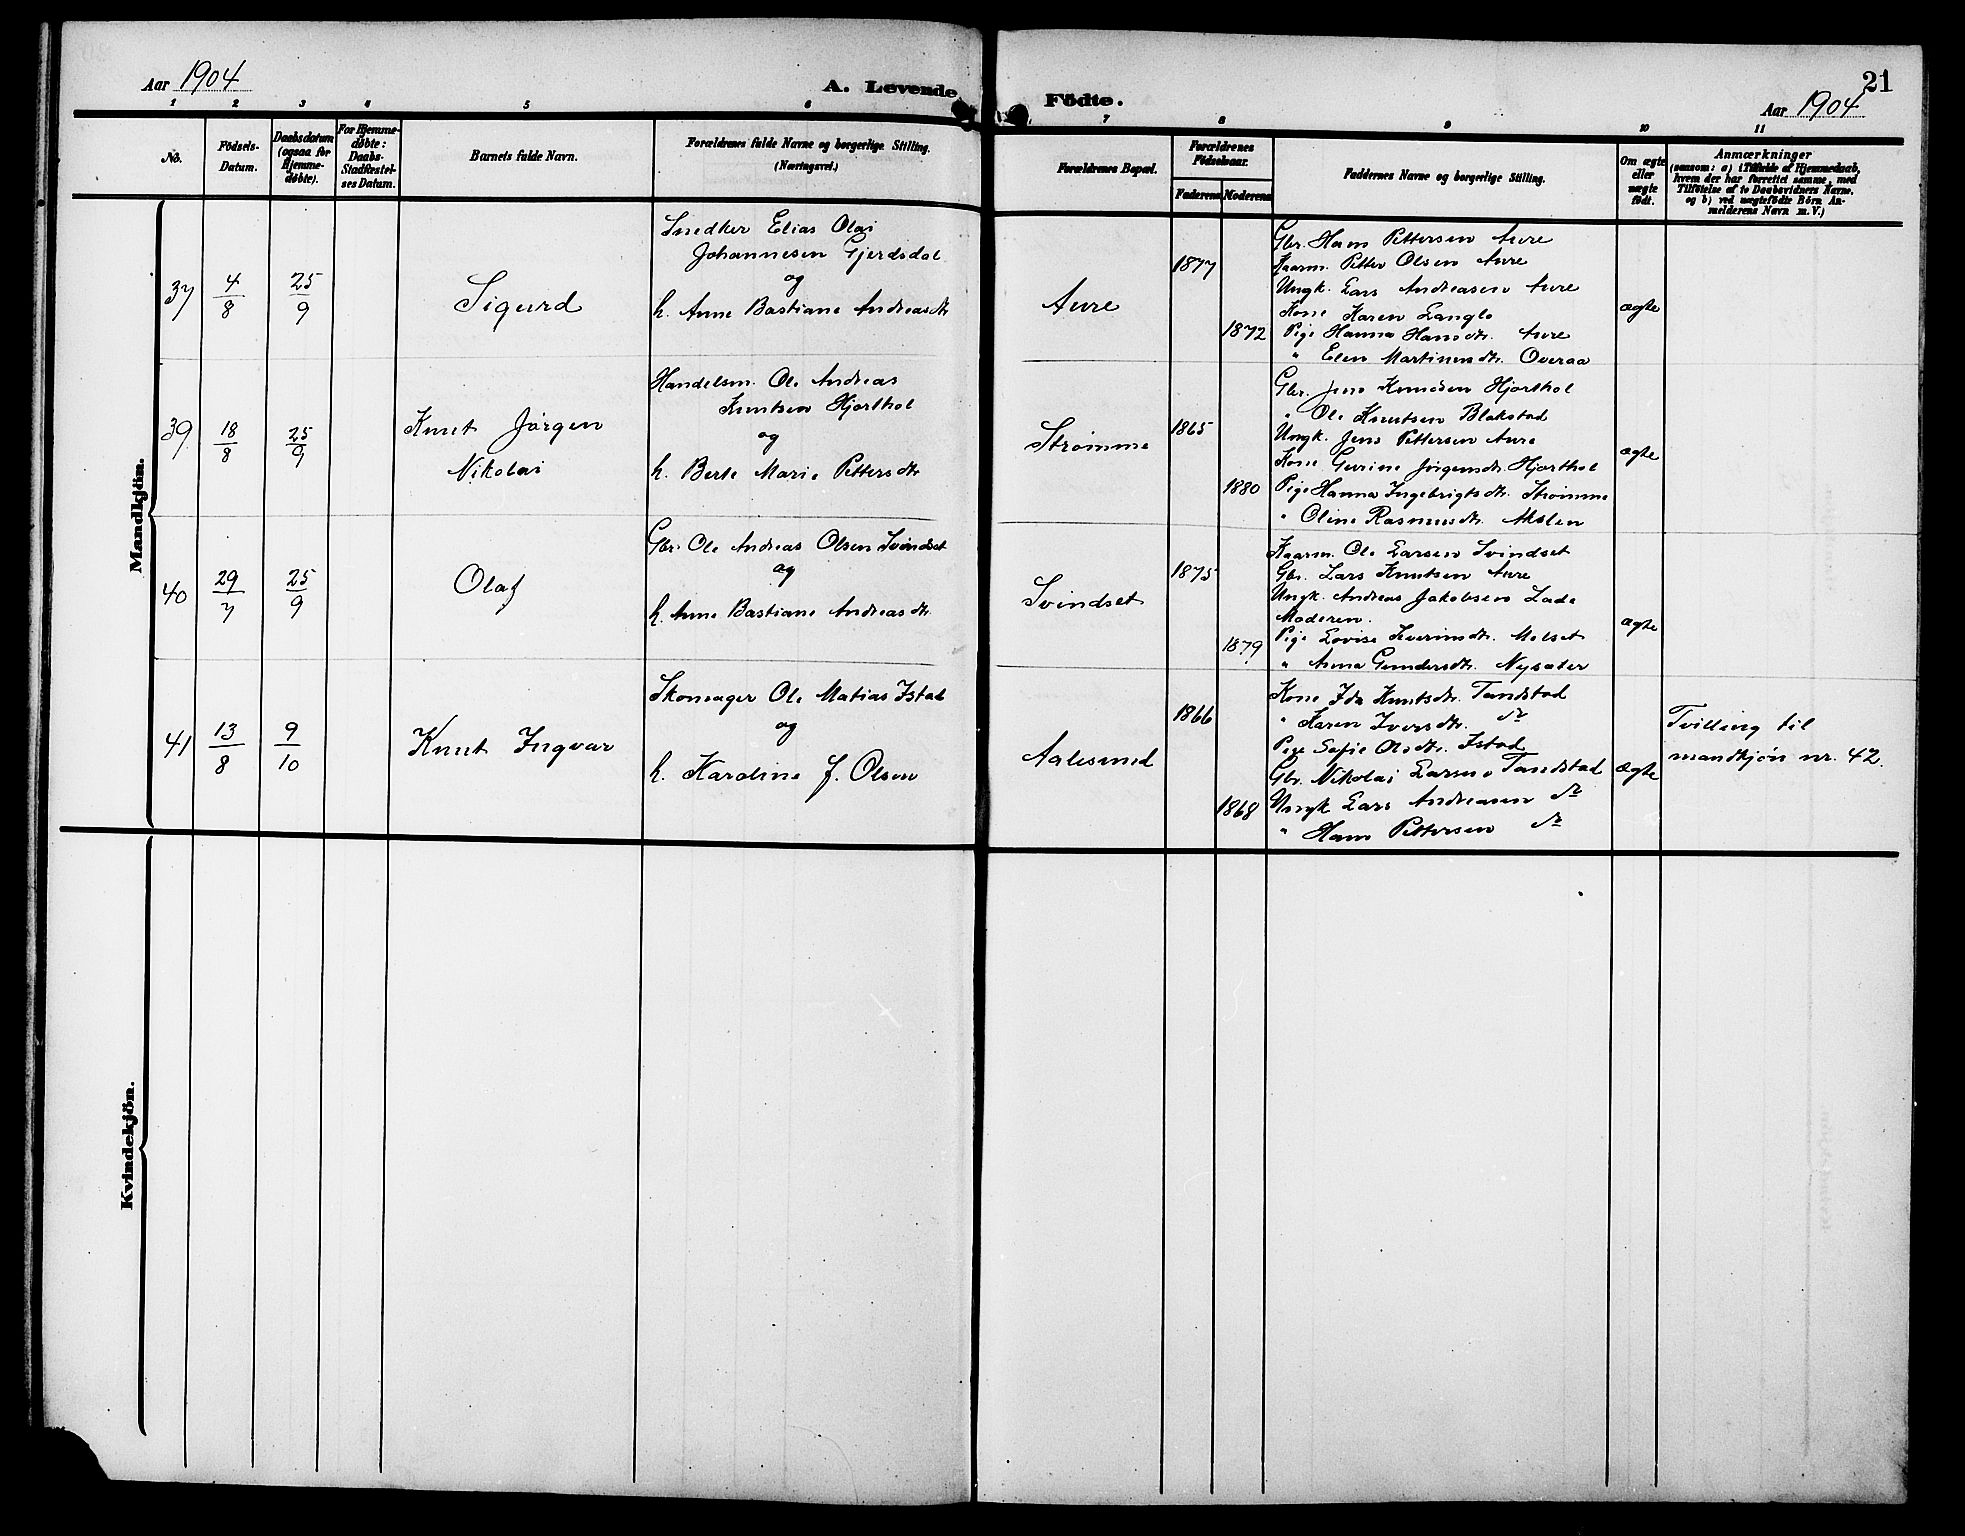 Aar 1904
A. Levende
Fødte.
21
Aar 1904
1 2 3 4 5 6 7 8 9 10 11
No.
Fødsels-
Datum.
Daabsdatum
(ogsaa for
Hjemme-
døbte).
For Hjemme-
døbte:
Daabs-
Stadfæstel-
ses Datum.
Barnets fulde Navn.
Forældrenes fulde Navne og borgerlige Stilling.
(Næringsvei.)
Forældrenes Bopæl.
Forældrenes
Fødselsaar.
Faderens
Moderens
Faddernes Navne og borgerlige Stilling.
Om ægte
eller
uægte
født.
Anmærkninger
(saasom: a) i Tilfælde af Hjemmedaab,
hvem der har forrettet samme, med
Tilføielse af to Daabsvidners Navne,
og b) ved uægtefødte Børn An-
melderens Navn m. V.)
Mandkjøn.
37
4/8
25/9
Sigurd
Snedker Elias Olai
Johannesen Gjerdsdal
og
h. Anne Bastiane Andreasdtr
Aure
1877
1872
Gbr. Hans Pettersen Aure
Kaarm. Petter Olsen Aure
Ungk. Lars Andreasen Aure
Kone Karen Langlo
Pige Hanna Hansdtr. Aure
" Elen Martinusdtr. Overaa
ægte
39
18/8
25/9
Knut Jørgen
Nikolai
Handelsm. Ole Andreas
Knutsen Hjorthol
og
h. Berte Marie Pettersdtr
Strømme
1865
1880
Gbr. Jens Knudsen Hjorthol
" Ole Knutsen Blakstad
Ungk. Jens Pettersen Aure
Kone Gurine Jørgensdtr. Hjorthol
Pige Hanna Ingebrigtsdtr. Strømme
" Oline Rasmusdtr. Akslen
ægte
40
29/7
25/9
Olaf
Gbr. Ole Andreas Olsen Svindset
og
h. Anne Bastiane Andreasdtr.
Svindset
1875
1879
Kaarm. Ole Larsen Svindset
Gbr. Lars Knutsen Aure
Ungk. Andreas Jakobsen Lade
Moderen.
Pige Lovise Severinsdtr. Melset
" Anna Gundersdtr. Nysæter
ægte
41
13/8
9/10
Knut Ingvar
Skomager Ole Matias Istad
og
h. Karoline f. Olsen
Aalesund
1866
1868
Kone Ida Knutsdtr. Tandstad
" Karen Iversdtr. do
Pige Sofie Olsdtr. Istad
Gbr. Nikolai Larsen Tandstad
Ungk Lars Andreasen do
" Hans Pettersen do
ægte
Tvilling til
mandkjøn nr. 42.
Kvindekjøn.